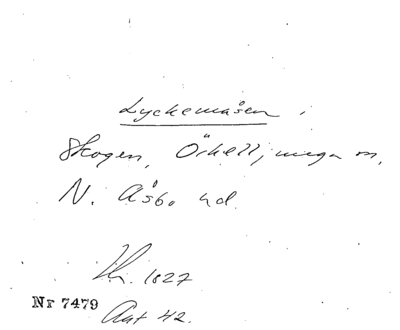 Lyckemåsen i
Skogen, Örkell,
N. Åsbo hd.
1827
Nr 7479
Akt 42.